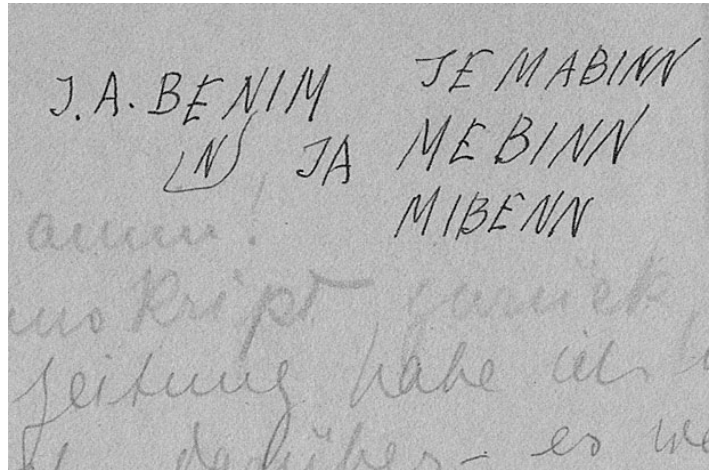 J.A. BENIM JEMABINN
(N) JA MEBINN
MIBENN
zurück
Zeitung habe ich
darüber - es